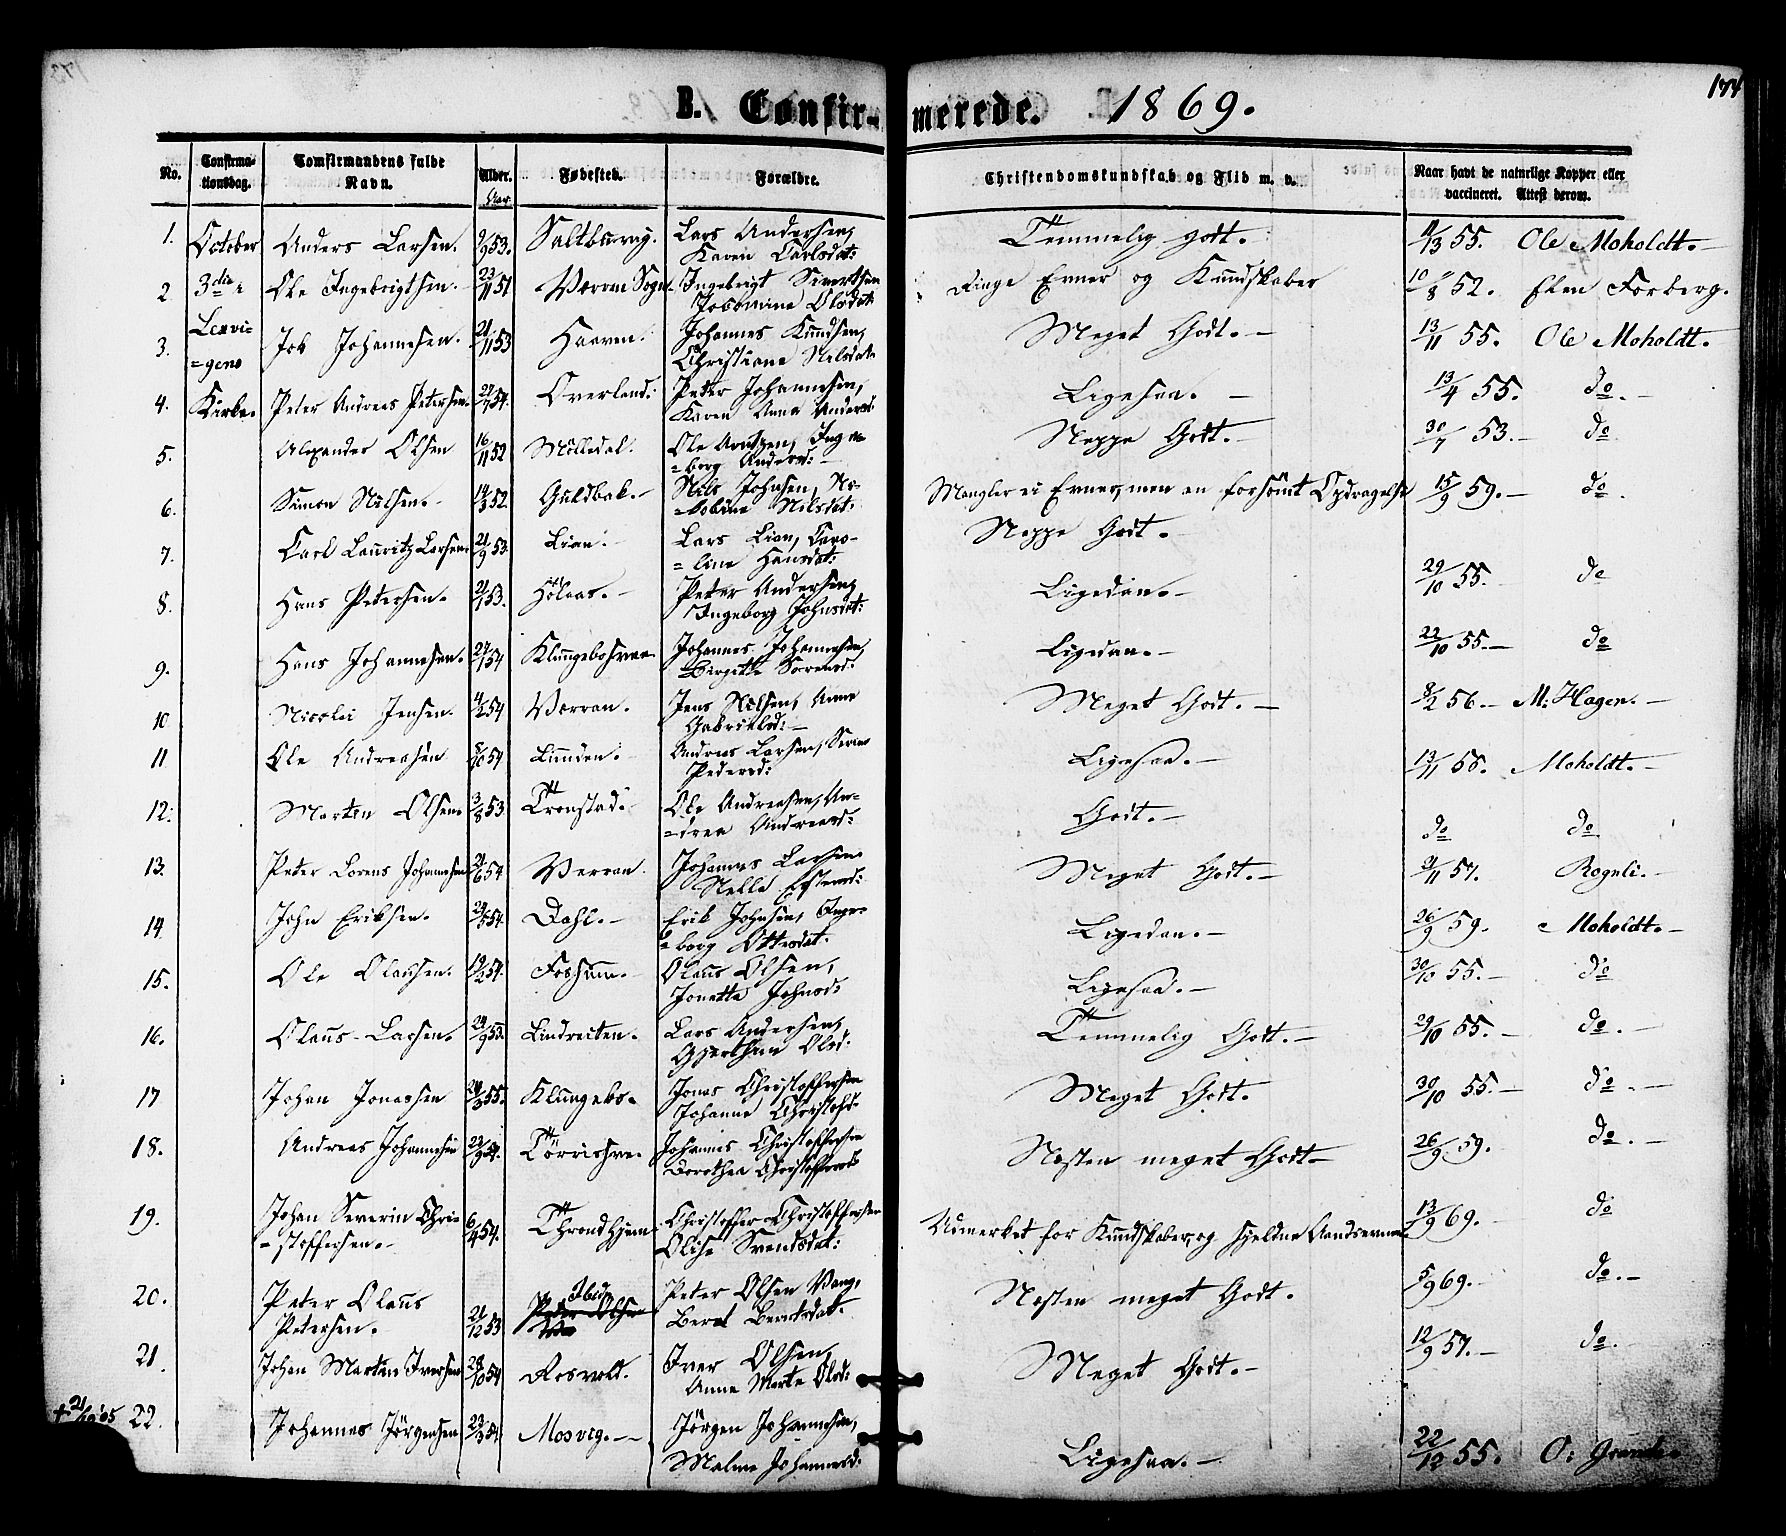 174
B. Confirmerede. 1869.
No. Confirmationsdag. Comfirmandens fulde Navn. Alder. Aar. Fødested. Forældre. Christendomskundskab og Flid m. v. Naar havt de naturlige Kopper eller vaccineret. Attest derom.
October 3die i Lexvigens Kirke.
1. Anders Larsen. 9/9 53. Saltburvig. Lars Andersen, Karen Carlsdat: Temmelig godt. 11/3 55. Ole Moholdt.
2. Ole Ingebrigthsen. 23/11 51 Værran Sogn. Ingebrigt Sivertsen Olsdat: Ringe Evner og Kundskaber 10/8 52. Elen Forberg.
3. Job Johannesen. 21/11 53 Haaven. Johannes Knudsen, Christiane Nilsdat. Meget Godt. 13/11 55. Ole Moholdt.
4. Peter Andreas Petersen. 54. Overland: Peter Johannesen, Karen Anna Andersd. Ligesaa. 13/4 55. do.
5. Alexander Olsen 16/11 52 Mölledal. Ole Arntzen, Inge=borg Andersd: Neppe Godt. 30/7 53. do
6. Simon Nilsen. 14/3 52. Guldbak. Nils Johnsen, Nilsdat. Mangler ei Evner, men en forsömt Opdragelse 15/9 59. do.
7. Carl Lauritz Larsen. 21/9 53. Lian. Lars Lian, Caro=line Hansdat: Neppe Godt.
8. Hans Petersen. 21/1 53. Hölaas. Peter Andersen, Ingeborg Johnsdat: Ligedan. 29/10 55. do
9. Hans Johannesen. 24/1 54 Johannes Johannesen, Birgitte Ligedan. 22/10 55. do
10 Nicolai Jensen. 4/2 54 Værran. Jens Nilsen, Anne Gabrielsd: Meget Godt. 8/2 56. M: Hagen.
11 Ole Andreasen 5/10 54 Lunden. Andreas Larsen, Pedersd: Ligesaa. 13/11 55. Moholdt.
12. Morten Olsen 3/8 53. Tronstad. Ole Andreasen, An=drea Andreasd: Godt. do do
13. Peter Lorens Johannesen 21/6 54 Verran. Johannes Larsen Meget Godt. 21/11 57. Rognli.
14. John Eriksen. 24/5 54. Dahl. Erik Johnsen, Inge=borg Ottesdat. Ligedan. 26/9 59. Moholdt.
15. Ole Olausen. 19/2 54. Foshum. Olaus Olsen, Jonetta Johnsd: Ligesaa. 30/10 55. do
16. Olaus Larsen. 24/9 53. Lindreiten. Lars Andersen, Olsd: Temmelig Godt. 29/10 55. do.
17 Johan Jonassen 24/3 55. Klungebo. Jonas Christoffersen Johanne Christofd. Meget Godt. 30/10 55. do.
18. Andreas Johannesen 23/9 54. Johannes Christoffersen Dorothea Christoffersd Næsten meget Godt 26/9 59. do.
19. Johan Severin Chri=stoffersen. 6/4 54. Throndhjem Christoffer Christoffersen Olise Svendsdat: Udmerket for Kundskaber og sjeldne Aandsevner. 13/9 69. do
20. Peter Olaus Petersen. 21/12 53 Ibid. Peter Olsen Vang, Beret Berntsdat. Næsten meget Godt. 5/9 69. do.
21 Johan Martin Iversen 28/10 54 Rosvold. Iver Olsen, Anne Marte Olsd: Meget Godt. 12/9 57. do.
22. Johannes Jörgensen 23/3 54. Mosvig. Jörgen Johannesen, Malene Johannesd: Ligesaa. 22/12 55. O: Grande